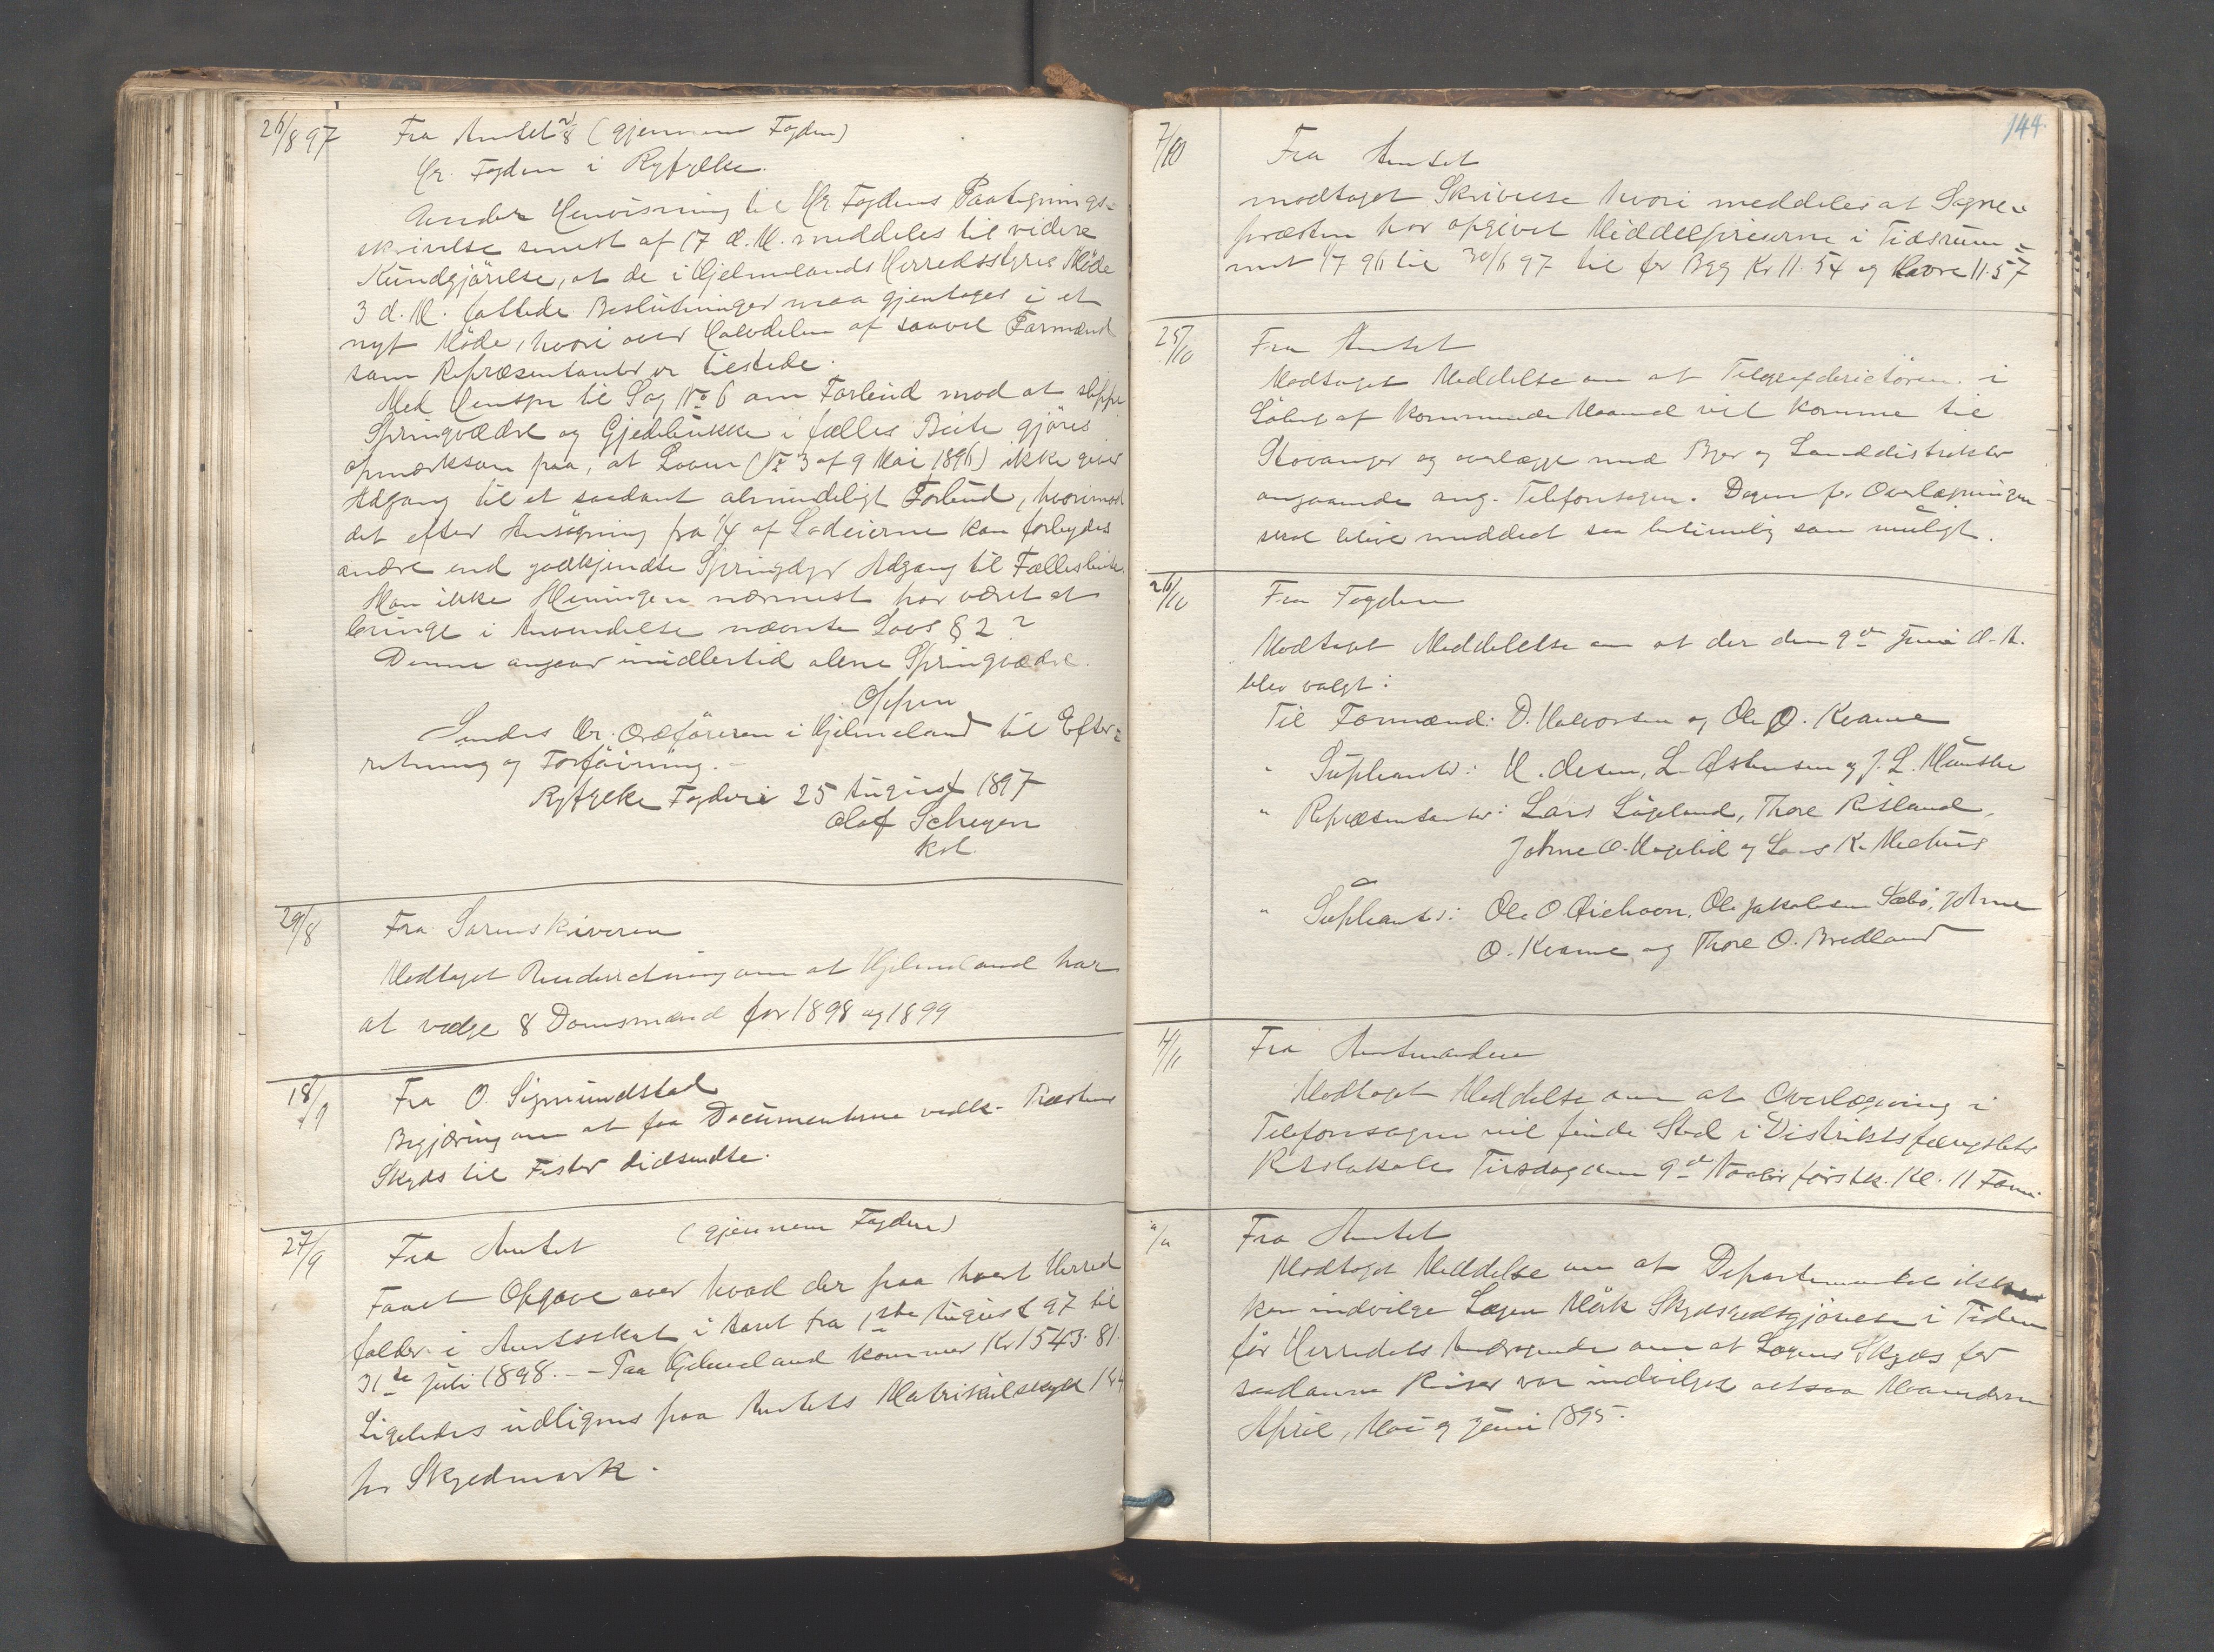 26/8 97 Fra Amtet (gjennem Fogden)
Hr. Fogden i Ryfylke.
Under Henvisning til Hr. Fogdens Paategnings-
skrivelse senest af 17 d. M. meddeles til videre
Kundgjörelse, at de i Hjelmelands Herredsstyres Möde
3 d. M. fattede Beslutninger maa gjentages i et
nyt Möde, hvori over Halvdelen af saavel Formænd
som Repræsentanter er tilstede.
Med Hensyn til Sag No 6 om Forbud mod at slippe
Springvædre og Gjedebukke i fælles Beite gjöres
opmærksom paa, at Loven (No 3 af 9 Mai 1896) ikke giver
Adgang til et saadant almindeligt Forbud, hvorimod
det efter Ansögning fra 1/4 af Lodeierne kan forbydes
andre end godkjendte Springdyr Adgang til Fællesbeite.
Mon ikke Meningen nærmest har været at
bringe i Anvendelse nævnte Lovs § 2?
Denne angaar imidlertid alene Springvædre.
Oppen
Sendes Hr. Ordföreren i Hjelmeland til Efter-
retning og Forföining.
Ryfylke Fogderi 25 August 1897
Olaf Scheyen
kst.
29/8 Fra Sorenskriveren
Modtaget Underretning om at Hjelmeland har
at vælge 8 Domsmænd for 1898 og 1899
18/9 Fra O. Sigmundstad
Begjæring om at faa Documenterne vedk. Præstens
Skyds til Fister didsendte.
27/9 Fra Amtet (gjennem Fogden)
Faaet Opgave over hvad der paa hvert Herred
falder i Amtsskat i Aaret fra 1ste August 97 til
31te Juli 1898. - Paa Hjelmeland kommer Kr 1543.81.
Ligeledes udlignes paa Amtets Matrikulskyld
pr Skyldmark.
144
7/10 Fra Amtet
modtaget Skrivelse hvori meddeles at Sogne-
præsten har opgivet Middelpriserne i Tidsrum-
met 1/7 96 til 30/6 97 til for Byg Kr 11.54 og Havre 11.57
25/10 Fra Amtet
Modtaget Meddelse om at Telegrafdirektören i
Löbet af kommende Maaned vil komme til
Stavanger og overlægge med Byer og Landdistrikter
angaaende ang. Telefonsagen. Dagen for Overlægningen
skal blive meddelt saa betimelig som muligt.
26/10 Fra Fogden
Modtaget Meddelelse om at der den 9de Juni d. A.
blev valgt:
Til Formænd: D. Halvorsen og Ole O. Kvame
" Supleanter: H. Olsen, L. Østensen og J. L. Munster
" Repræsentanter: Lars Lögeland, Thore Risland,
Johne O. Hagelid og Lars K. Mæhus
" Supleanter: Ole O. Öiehavn, Ole Jakobsen Sæbö, Johne
O. Kvame og Thore O. Bredland
4/11 Fra Amtmanden
Modtaget Meddelse om at Overlægning i
Telefonsagen vil finde Sted i Distriktsfængslets
Retslokale Tirsdag den 9de Novbr förstk. Kl. 11 Form.
Fra Amtet
Modtaget Meddelse om at Departementet ikke
kan indvilge Lægen Mörk Skydsgodtgjörelse i Tiden
för Herredets Andragende om at Lægens Skyds for
saadanne Reiser var indvilget altsaa Maanederne
April, Mai og Juni 1895.